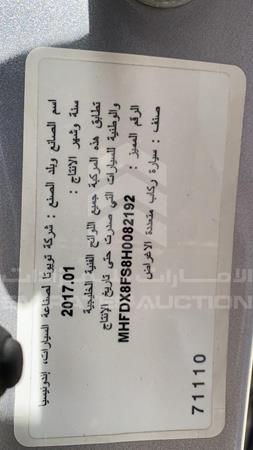 اسم الصانع وبلد الصنع : شركة تويوتا لصناعة السيارات، إندونيسيا
سنة وشهر الانتاج : 2017.01
تطابق هذه المركبة جميع اللوائح الفنية الخليجية
والوطنية للسيارات التي صدرت حتى تاريخ الإنتاج
الرقم المميز : MHFDX8FS8H0082192
صنف : سيارة ركاب متعددة الاغراض
71110
الامارات
AUCTION